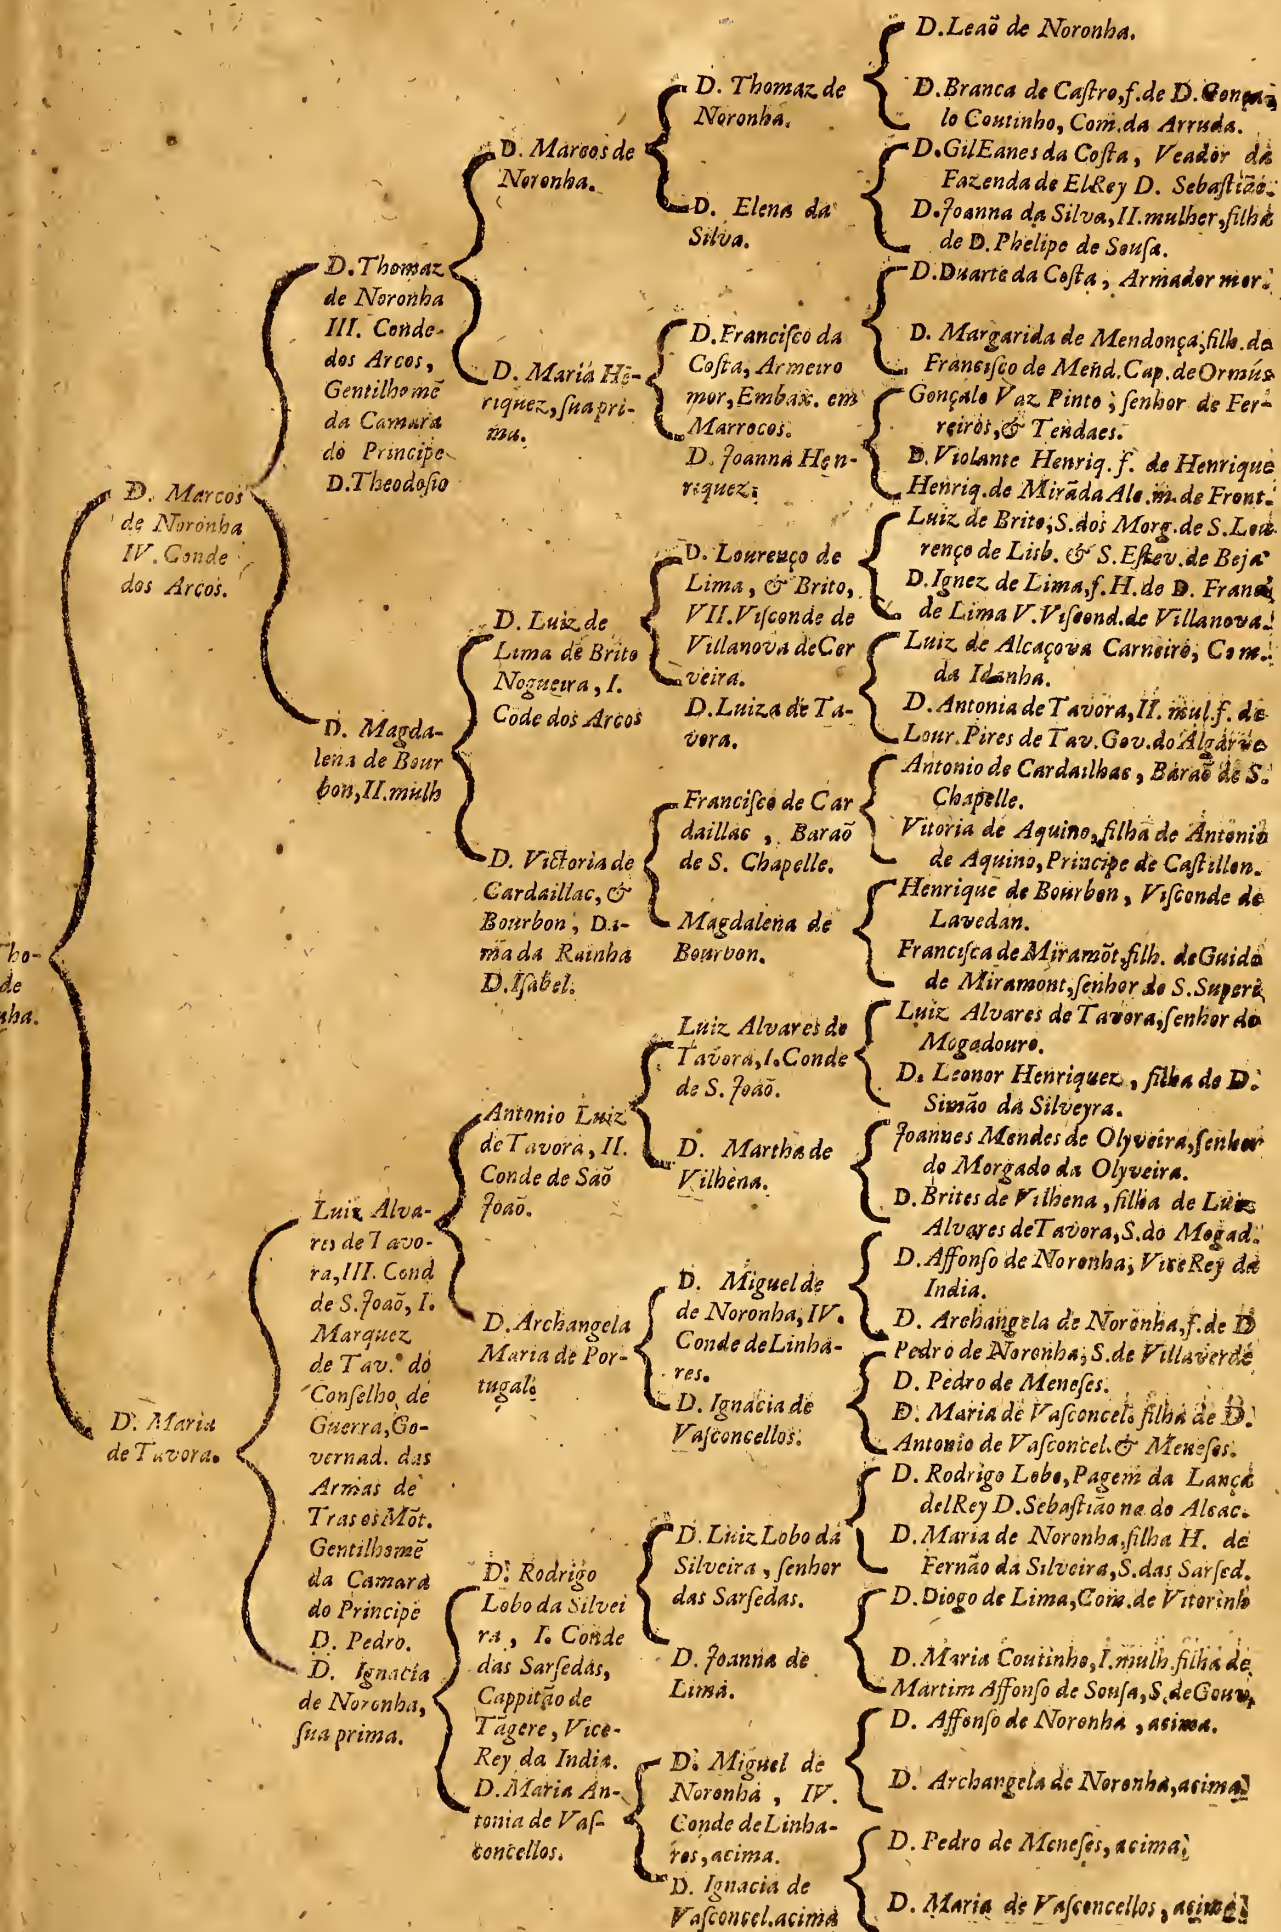 Tho-
de
nha.
D. Marcos
de Noronha
IV. Conde
dos Arcos.
D. Maria
de Tavora.
D. Thomaz
de Noronha
III. Conde
dos Arcos,
Gentilhomẽ
da Camara
do Principe
D. Theodosio
D. Magda-
lena de Bour
bon, II. mulh
Luiz Alva-
res de Tavo-
ra, III. Cond
de S. Joaõ, I.
Marquez
de Tav. do
Conselho de
Guerra, Go-
vernad. das
Armas de
Tras os Mõt.
Gentilhomẽ
da Camara
do Principe
D. Pedro.
D. Ignacia
de Noronha,
ſua prima.
D. Marcos de
Noronha.
D. Maria Hẽ-
riquez, ſua pri-
ma.
D. Luiz de
Lima de Brito
Nogueira, I.
Cõde dos Arcos
D. Victoria de
Cardaillac, &
Bourbon, Da-
ma da Rainha
D. Iſabel.
Antonio Luiz
de Tavora, II.
Conde de Saõ
Joaõ.
D. Archangela
Maria de Por-
tugal.
D. Rodrigo
Lobo da Silvei
ra, I. Conde
das Sarſedas,
Cappitaõ de
Tãgere, Vice-
Rey da India.
D. Maria An-
tonia de Vaſ-
concellos.
D. Thomaz de
Noronha.
D. Elena da
Silva.
D. Franciſco da
Coſta, Armeiro
mor, Embax. em
Marrocos.
D. Joanna Hen-
riquez.
D. Lourenço de
Lima, & Brito,
VII. Viſconde de
Villanova de Cer
veira.
D. Luiza de Ta-
vora.
Franciſco de Car
daillac, Baraõ
de S. Chapelle.
Magdalena de
Bourbon.
Luiz Alvares de
Tavora, I. Conde
de S. Joaõ.
D. Martha de
Vilhena.
D. Miguel de
de Noronha, IV.
Conde de Linha-
res.
D. Ignacia de
Vaſconcellos.
D. Luiz Lobo da
Silveira, ſenhor
das Sarſedas.
D. Joanna de
Lima.
D. Miguel de
Noronha, IV.
Conde de Linha-
res, acima.
D. Ignacia de
Vaſconcel. acima
D. Leaõ de Noronha.
D. Branca de Caſtro, f. de D. Gonça-
lo Coutinho, Com. da Arruda.
D. Gil Eanes da Coſta, Veador da
Fazenda de ElRey D. Sebaſtiaõ.
D. Joanna da Silva, II. mulher, filha
de D. Phelipe de Souſa.
D. Duarte da Coſta, Armador mor.
D. Margarida de Mendonça, filh. de
Franciſco de Mend. Cap. de Ormús
Gonçalo Vaz Pinto, ſenhor de Fer-
reiros, & Tendaes.
D. Violante Henriq. f. de Henrique
Henriq. de Mirãda Alc. m. de Front.
Luiz de Brito, S. dos Morg. de S. Lou-
renço de Lisb. & S. Eſtev. de Beja
D. Ignez de Lima, f. H. de D. Franc.
de Lima V. Viſcond. de Villanova.
Luiz de Alcaçova Carneiro, Com.
da Idanha.
D. Antonia de Tavora, II. mul. f. de
Lour. Pires de Tav. Gov. do Algarve
Antonio de Cardailhac, Baraõ de S.
Chapelle.
Vitoria de Aquino, filha de Antonio
de Aquino, Principe de Caſtillon.
Henrique de Bourbon, Viſconde de
Lavedan.
Franciſca de Miramõt, filh. de Guido
de Miramont, ſenhor de S. Superi.
Luiz Alvares de Tavora, ſenhor do
Mogadouro.
D. Leonor Henriquez, filha de D.
Simão da Silveyra.
Joannes Mendes de Olyveira, ſenhor
do Morgado da Olyveira.
D. Brites de Vilhena, filha de Luiz
Alvares de Tavora, S. do Mogad.
D. Affonſo de Noronha, ViceRey da
India.
D. Archangela de Noronha, f. de D
Pedro de Noronha, S. de Villaverde
D. Pedro de Meneſes.
D. Maria de Vaſconcel. filha de D.
Antonio de Vaſconcel. & Meneſes.
D. Rodrigo Lobo, Pagem da Lança
delRey D. Sebaſtião na de Alcac.
D. Maria de Noronha, filha H. de
Fernão da Silveira, S. das Sarſed.
D. Diogo de Lima, Com. de Vitorinho
D. Maria Coutinho, I. mulh. filha de
Martim Affonſo de Souſa, S. de Gouv.
D. Affonſo de Noronha, acima.
D. Archangela de Noronha, acima.
D. Pedro de Meneſes, acima.
D. Maria de Vaſconcellos, acima.